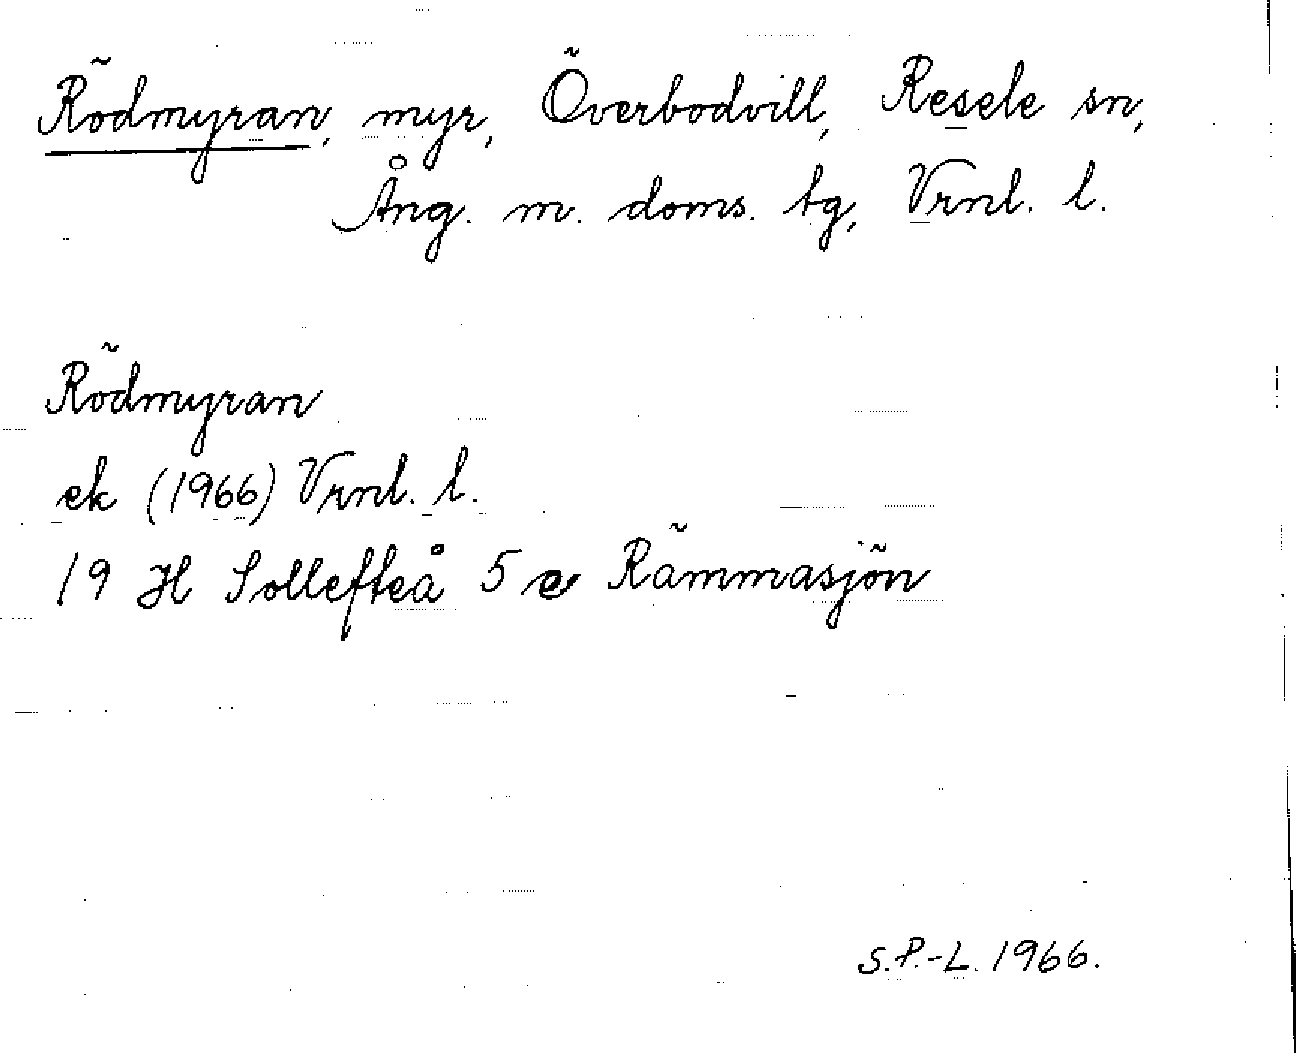 Rödmyran, myr, Överbodvill, Resele sn,
Ång. m. doms. tg, Vrnl. l.
Rödmyran
ek (1966) Vrnl. l.
19 H Sollefteå 5 e Rämmasjön
S.P.-L. 1966.